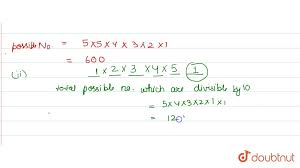 possible No. = 5x5x4x3x2x1
= 600
(ii) 1 x 2 x 3 x 4 x 5 1
total possible no. which are divisible by 10
= 5x4x3x2x1x1
= 120
doubtnut